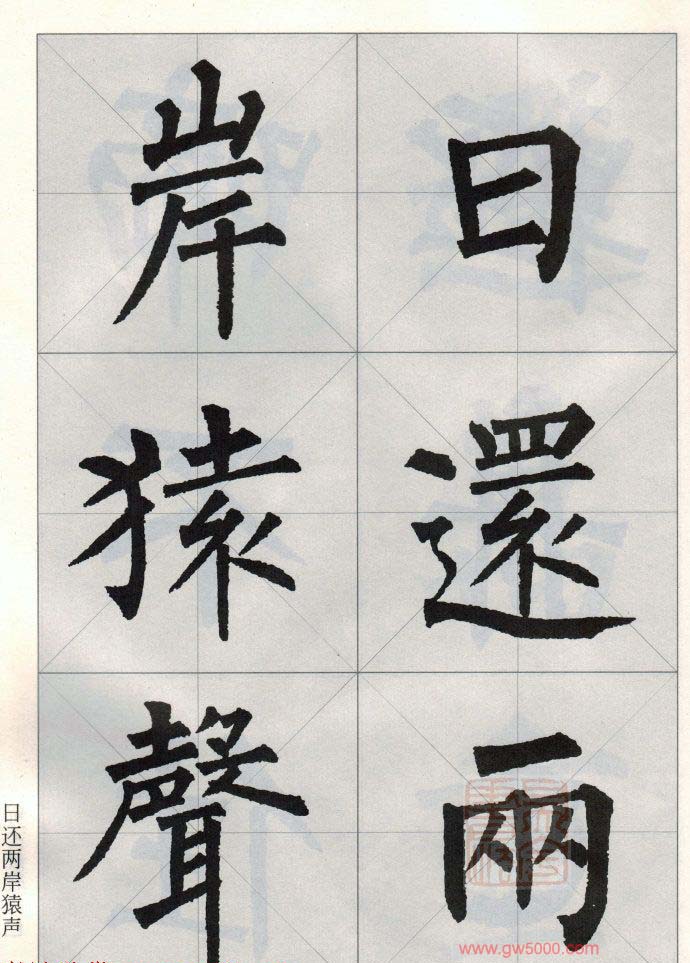 日還兩
岸猿聲
日还两岸猿声
www.gw5000.com